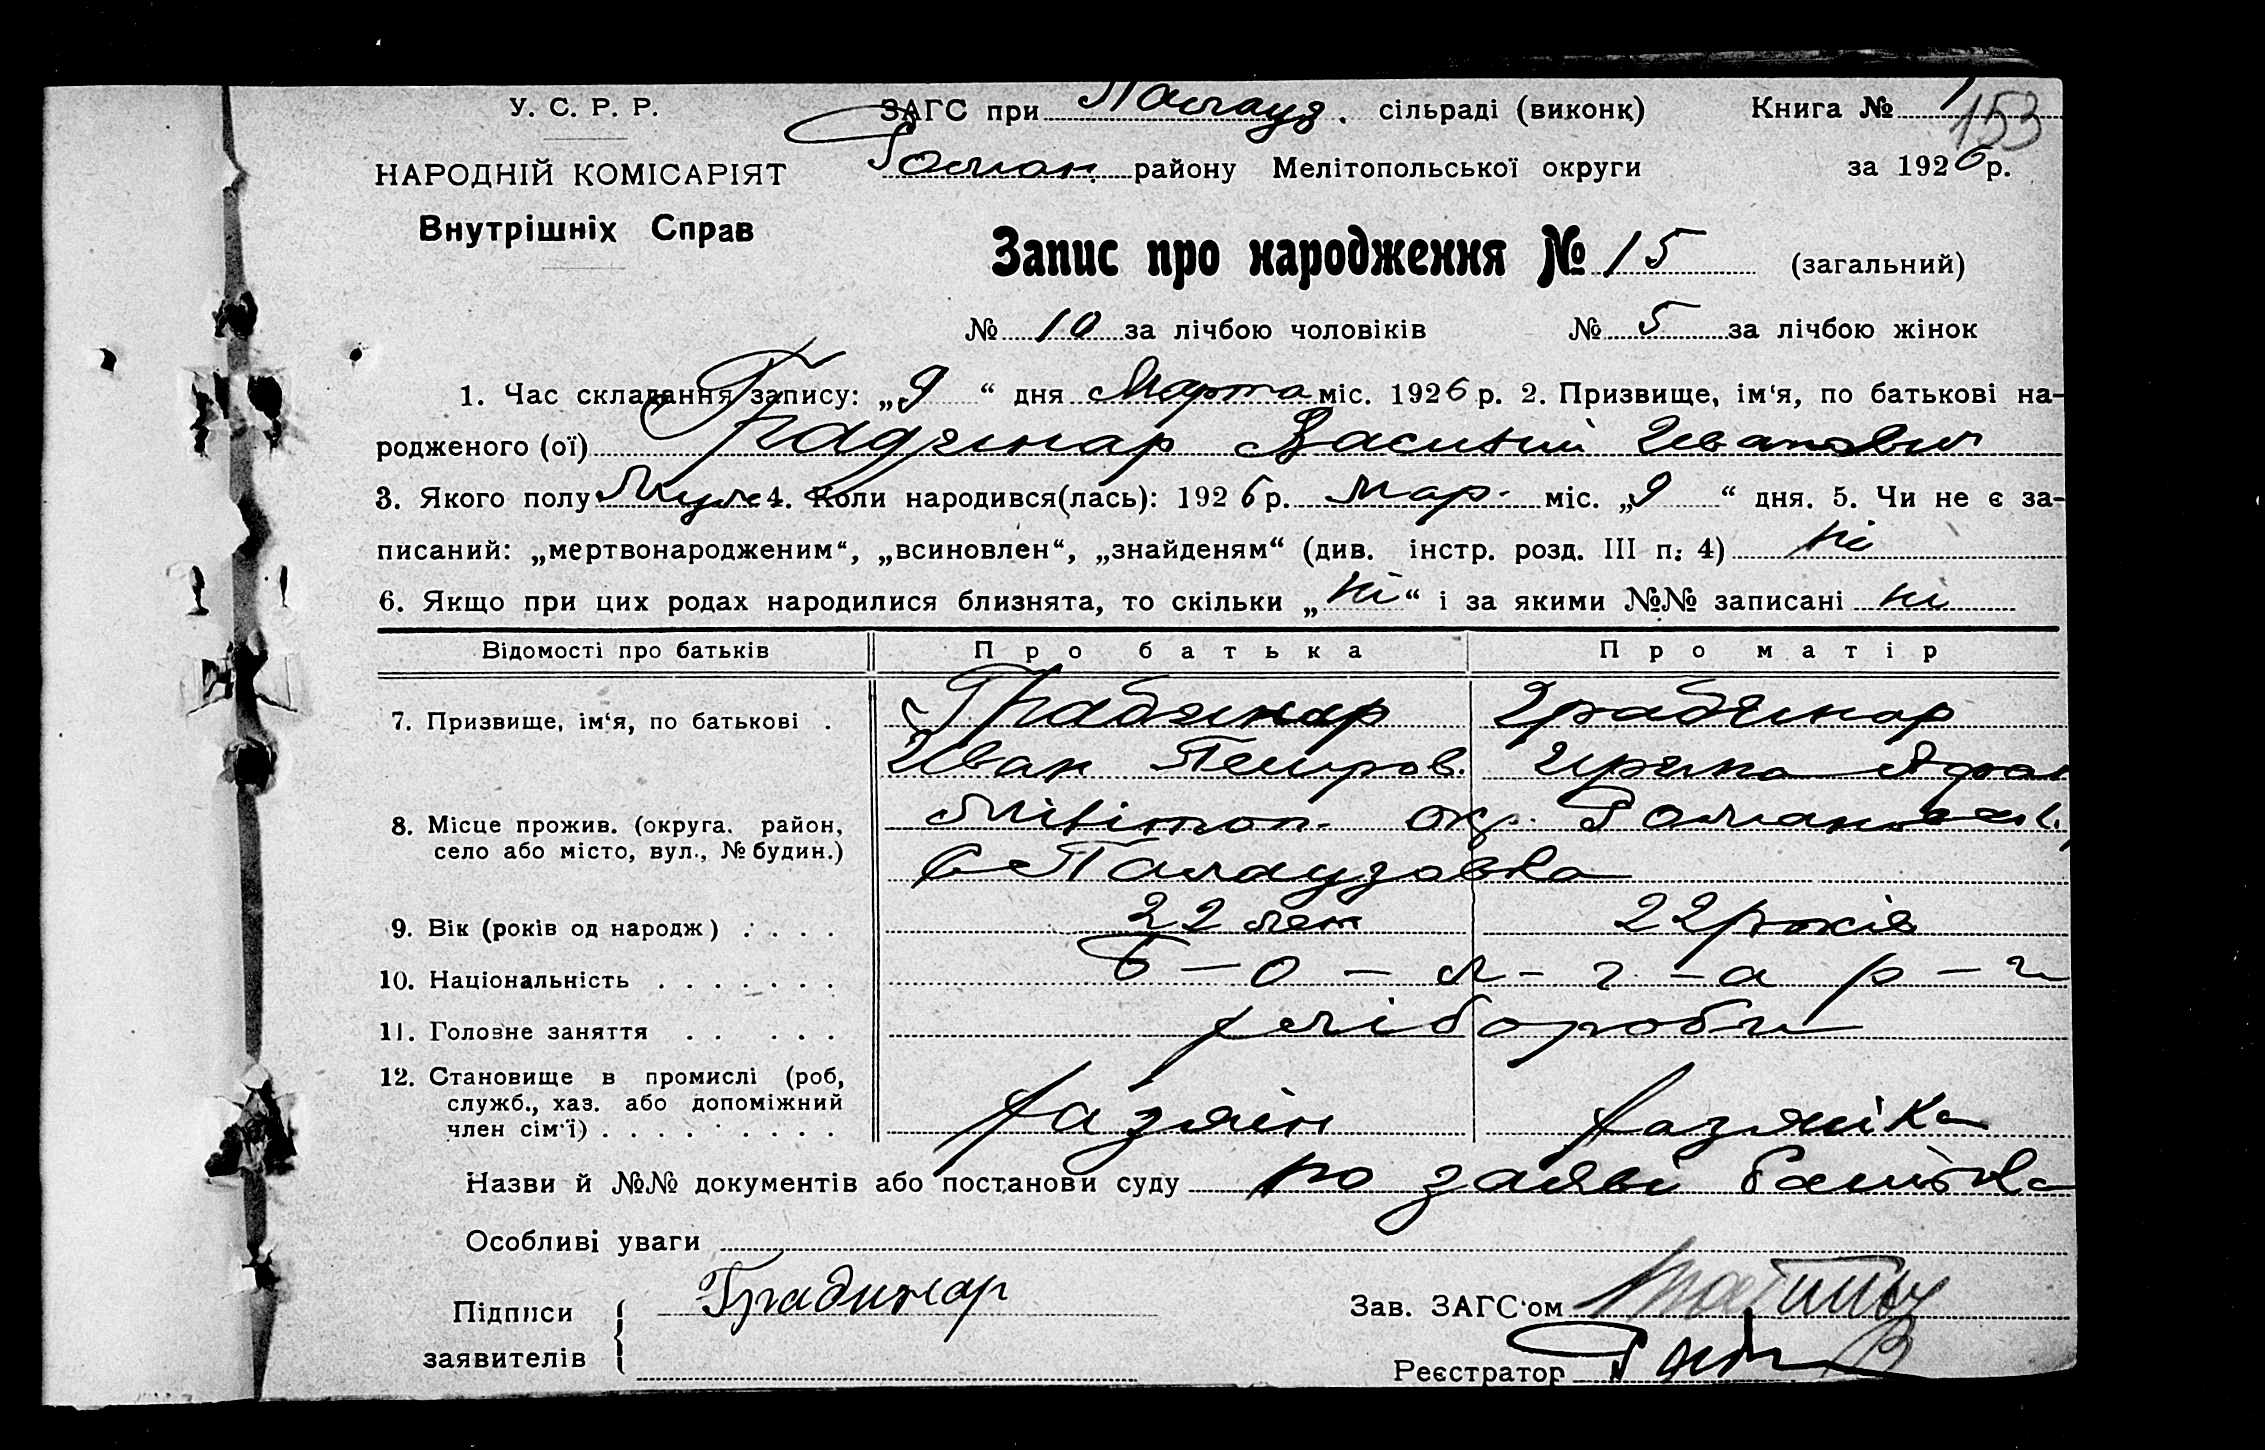 У. С. Р. Р.
ЗАГС при Палауз. сільраді (виконк) Книга № 1
153
НАРОДНІЙ КОМІСАРІЯТ
Роман. району Мелітопольської округи за 1926 р.
Внутрішніх Справ
Запис про народження № 15 (загальний)
№ 10 за лічбою чоловіків № 5 за лічбою жінок
1. Час складання запису: „9“ дня Марта міс. 1926 р. 2. Призвище, ім‘я, по батькові на-
родженого (ої) Градинар Василий Иванович
3. Якого полу Муже 4. Коли народився(лась): 1926 р. Мар. міс. „9“ дня. 5. Чи не є за-
писаний: „мертвонародженим“, „всиновлен“, „знайденям“ (див. інстр. розд. III п. 4) ні
6. Якщо при цих родах народилися близнята, то скільки „ні“ і за якими №№ записані ні
Відомості про батьків Про батька Про матір
7. Призвище, ім‘я, по батькові . Градинар Градинар
Иван Петров. Ирина Афан
8. Місце прожив. (округа. район, Мілітоп. окр. Романовськ.
село або місто, вул., № будин.) с Палаузовка
9. Вік (років од народж) . . . . 22 лет 22 років
10. Національність . . . . . . . Б — о — л — г — а р — и
11. Головне заняття . . . . . хліборобы
12. Становище в промислі (роб,
служб., хаз. або допоміжний
член сім‘ї) . . . . . . . . . хазяін хазяйка
Назви й №№ документів або постанови суду по заяві батька
Особливі уваги
Підписи Градинар Зав. ЗАГС‘ом
заявителів Реєстратор